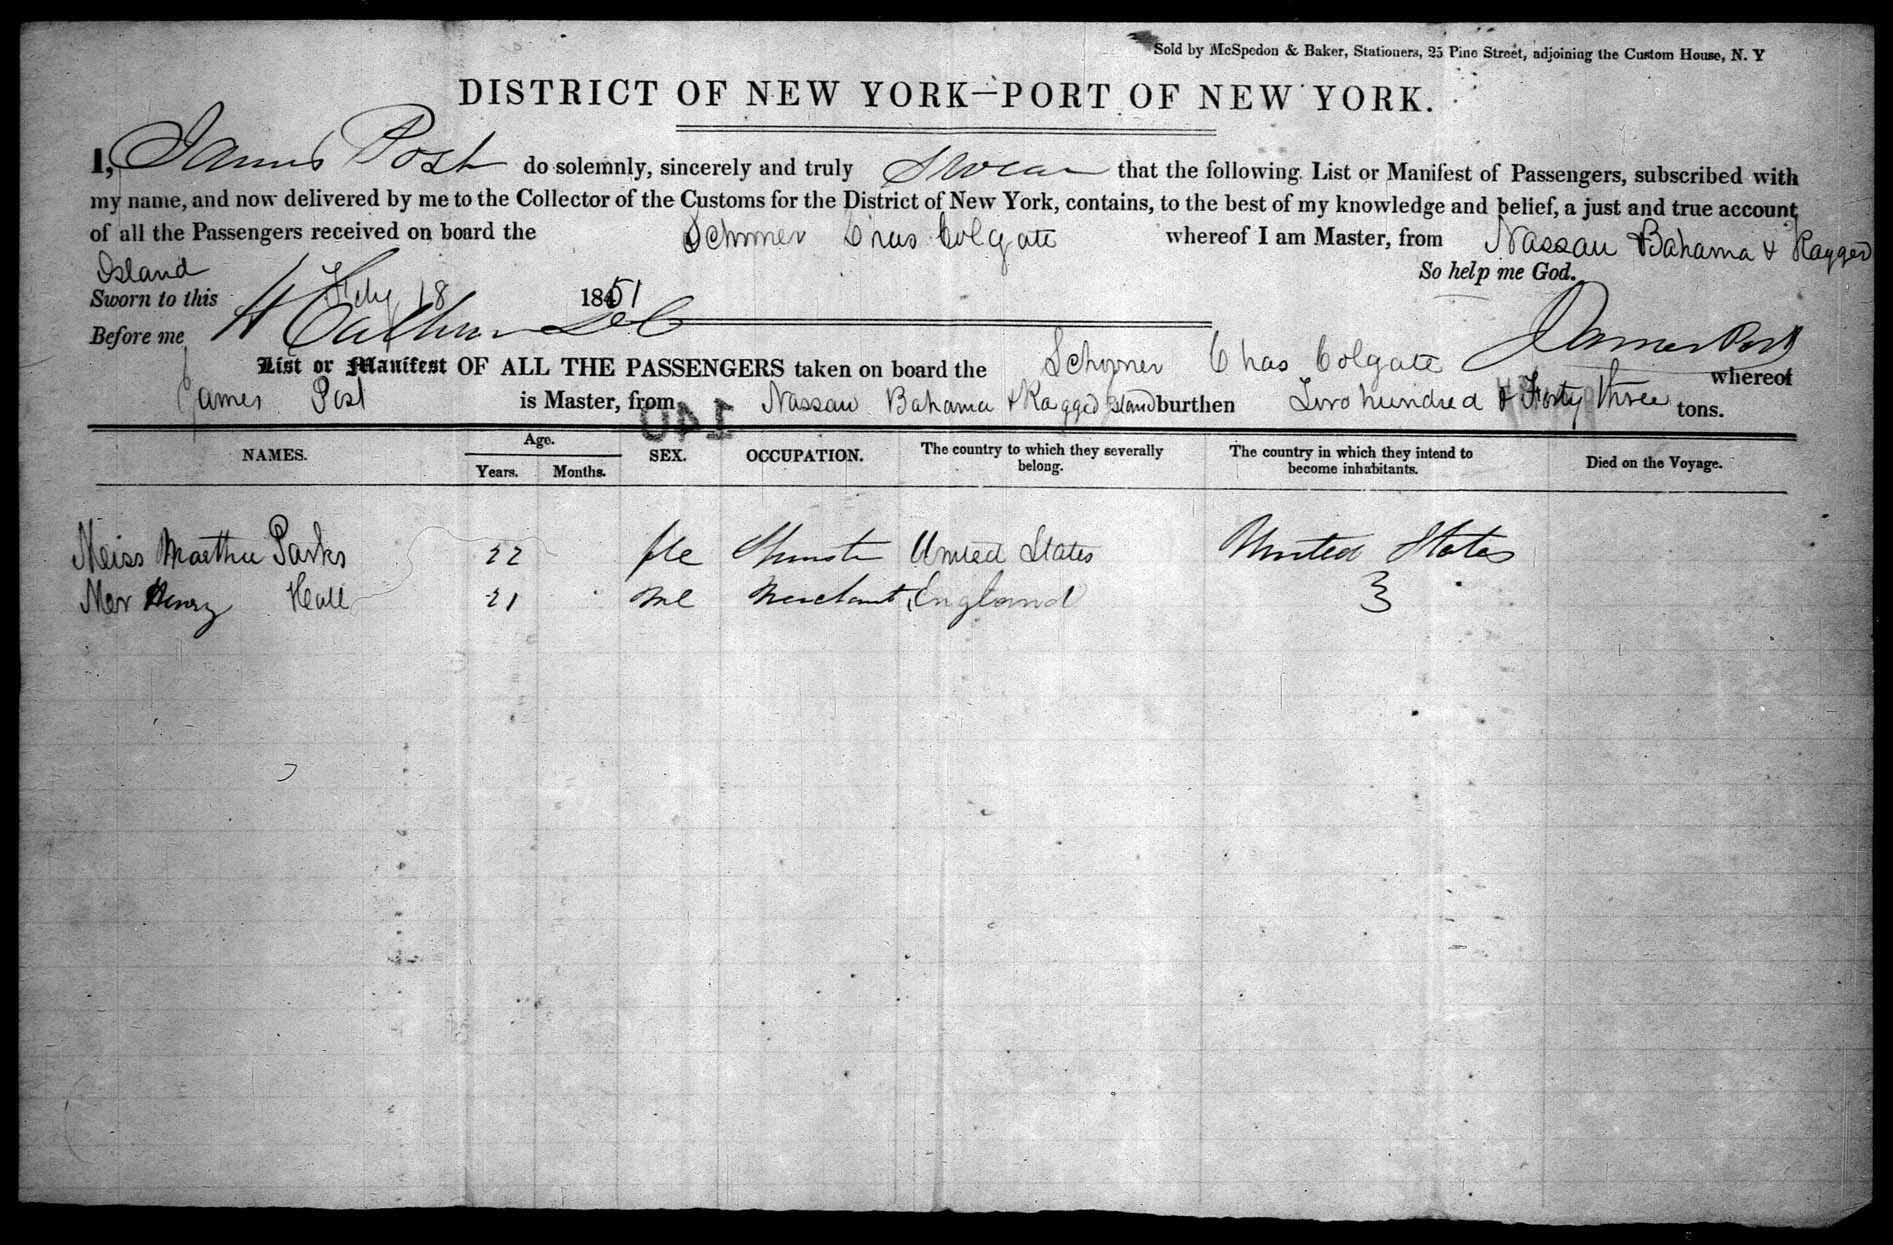 Sold by McSpedon & Baker, Stationers, 25 Pine Street, adjoining the Custom House, N. Y
DISTRICT OF NEW YORK—PORT OF NEW YORK.
I, James Post do solemnly, sincerely and truly Swear that the following List or Manifest of Passengers, subscribed with
my name, and now delivered by me to the Collector of the Customs for the District of New York, contains, to the best of my knowledge and belief, a just and true account
of all the Passengers received on board the Schooner Chas Colgate whereof I am Master, from Nassau Bahama & Ragged
Island So help me God.
Sworn to this Feby 18 1851
Before me H Calhoun James Post
List or Manifest OF ALL THE PASSENGERS taken on board the Schooner Chas Colgate whereof
James Post is Master, from Nassau Bahama & Ragged Island burthen Two hundred & Forty three tons.
140
NAMES. Age. Years. Months. SEX. OCCUPATION. The country to which they severally belong. The country in which they intend to become inhabitants. Died on the Voyage.
Miss Martha Parks 22 fle United States United States
Mr Henry Hall 21 ml Merchant England